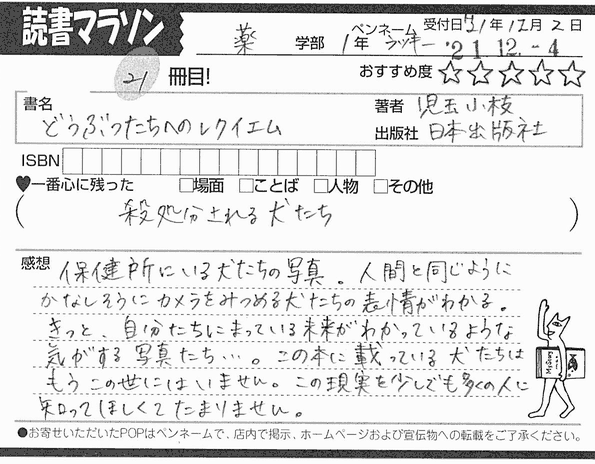 読書マラソン
薬 学部 1年 ペンネーム ラッキー 受付日 '21年12月2日
'21.12.-4
21 冊目!
おすすめ度 ☆☆☆☆☆
書名
どうぶつたちへのレクイエム
著者 児玉小枝
出版社 日本出版社
ISBN
♥一番心に残った □場面 □ことば □人物 □その他
(殺処分される犬たち)
感想 保健所にいる犬たちの写真。人間と同じように
かなしそうにカメラをみつめる犬たちの表情がわかる。
きっと、自分たちにまっている未来がわかっているような
気がする写真たち…。この本に載っている犬たちは
もうこの世にはいません。この現実を少しでも多くの人に
知ってほしくてたまりません。
●お寄せいただいたPOPはペンネームで、店内で掲示、ホームページおよび宣伝物への転載をご了承ください。